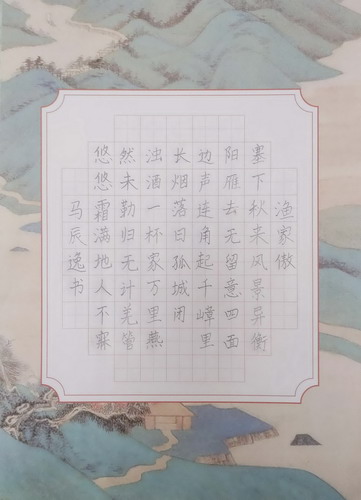 渔家傲
塞下秋来风景异衡
阳雁去无留意四面
边声连角起千嶂里
长烟落日孤城闭
浊酒一杯家万里燕
然未勒归无计羌管
悠悠霜满地人不寐
马辰逸书